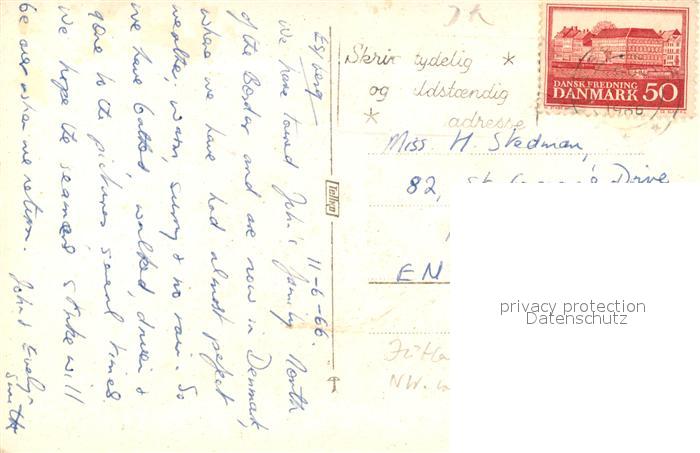 Esbjerg
11-6-66.
We have toured John's family North
of the Border and are now in Denmark,
where we have had almost perfect
weather, warm, sunny & no rain. So
we have bathed, walked, driven &
gone to the pictures several times.
We hope the seamens strike will
be over when we return.
John & Evelyn
Smith
Tellhop
JK
Skriv tydelig *
og fuldstændig
* adresse
DANSK FREDNING
DANMARK 50
Miss H. Stedman,
82, St. George's Drive
EN
NW.
privacy protection
Datenschutz